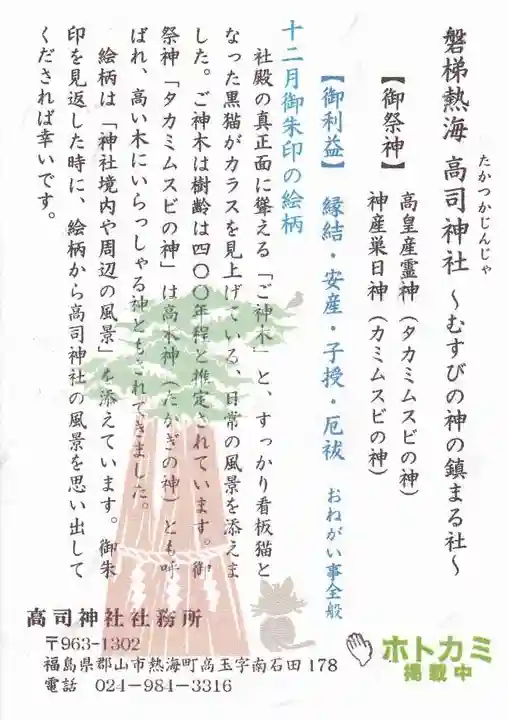 磐梯熱海 高司神社 ～むすびの神の鎮まる社～
たかつかじんじゃ
【御祭神】 高皇産霊神（タカミムスビの神）
神産巣日神（カミムスビの神）
【御利益】 縁結・安産・子授・厄祓 おねがい事全般
十二月御朱印の絵柄
社殿の真正面に聳える「ご神木」と、すっかり看板猫と
なった黒猫がカラスを見上げている、日常の風景を添えま
した。ご神木は樹齢は四〇〇年程と推定されています。御
祭神「タカミムスビの神」は高木神（たかぎの神）とも呼
ばれ、高い木にいらっしゃる神ともされてきました。
絵柄は「神社境内や周辺の風景」を添えています。御朱
印を見返した時に、絵柄から高司神社の風景を思い出して
くだされば幸いです。
高司神社社務所
〒963-1302
福島県郡山市熱海町高玉字南石田 178
電話 024-984-3316
ホトカミ
掲載中